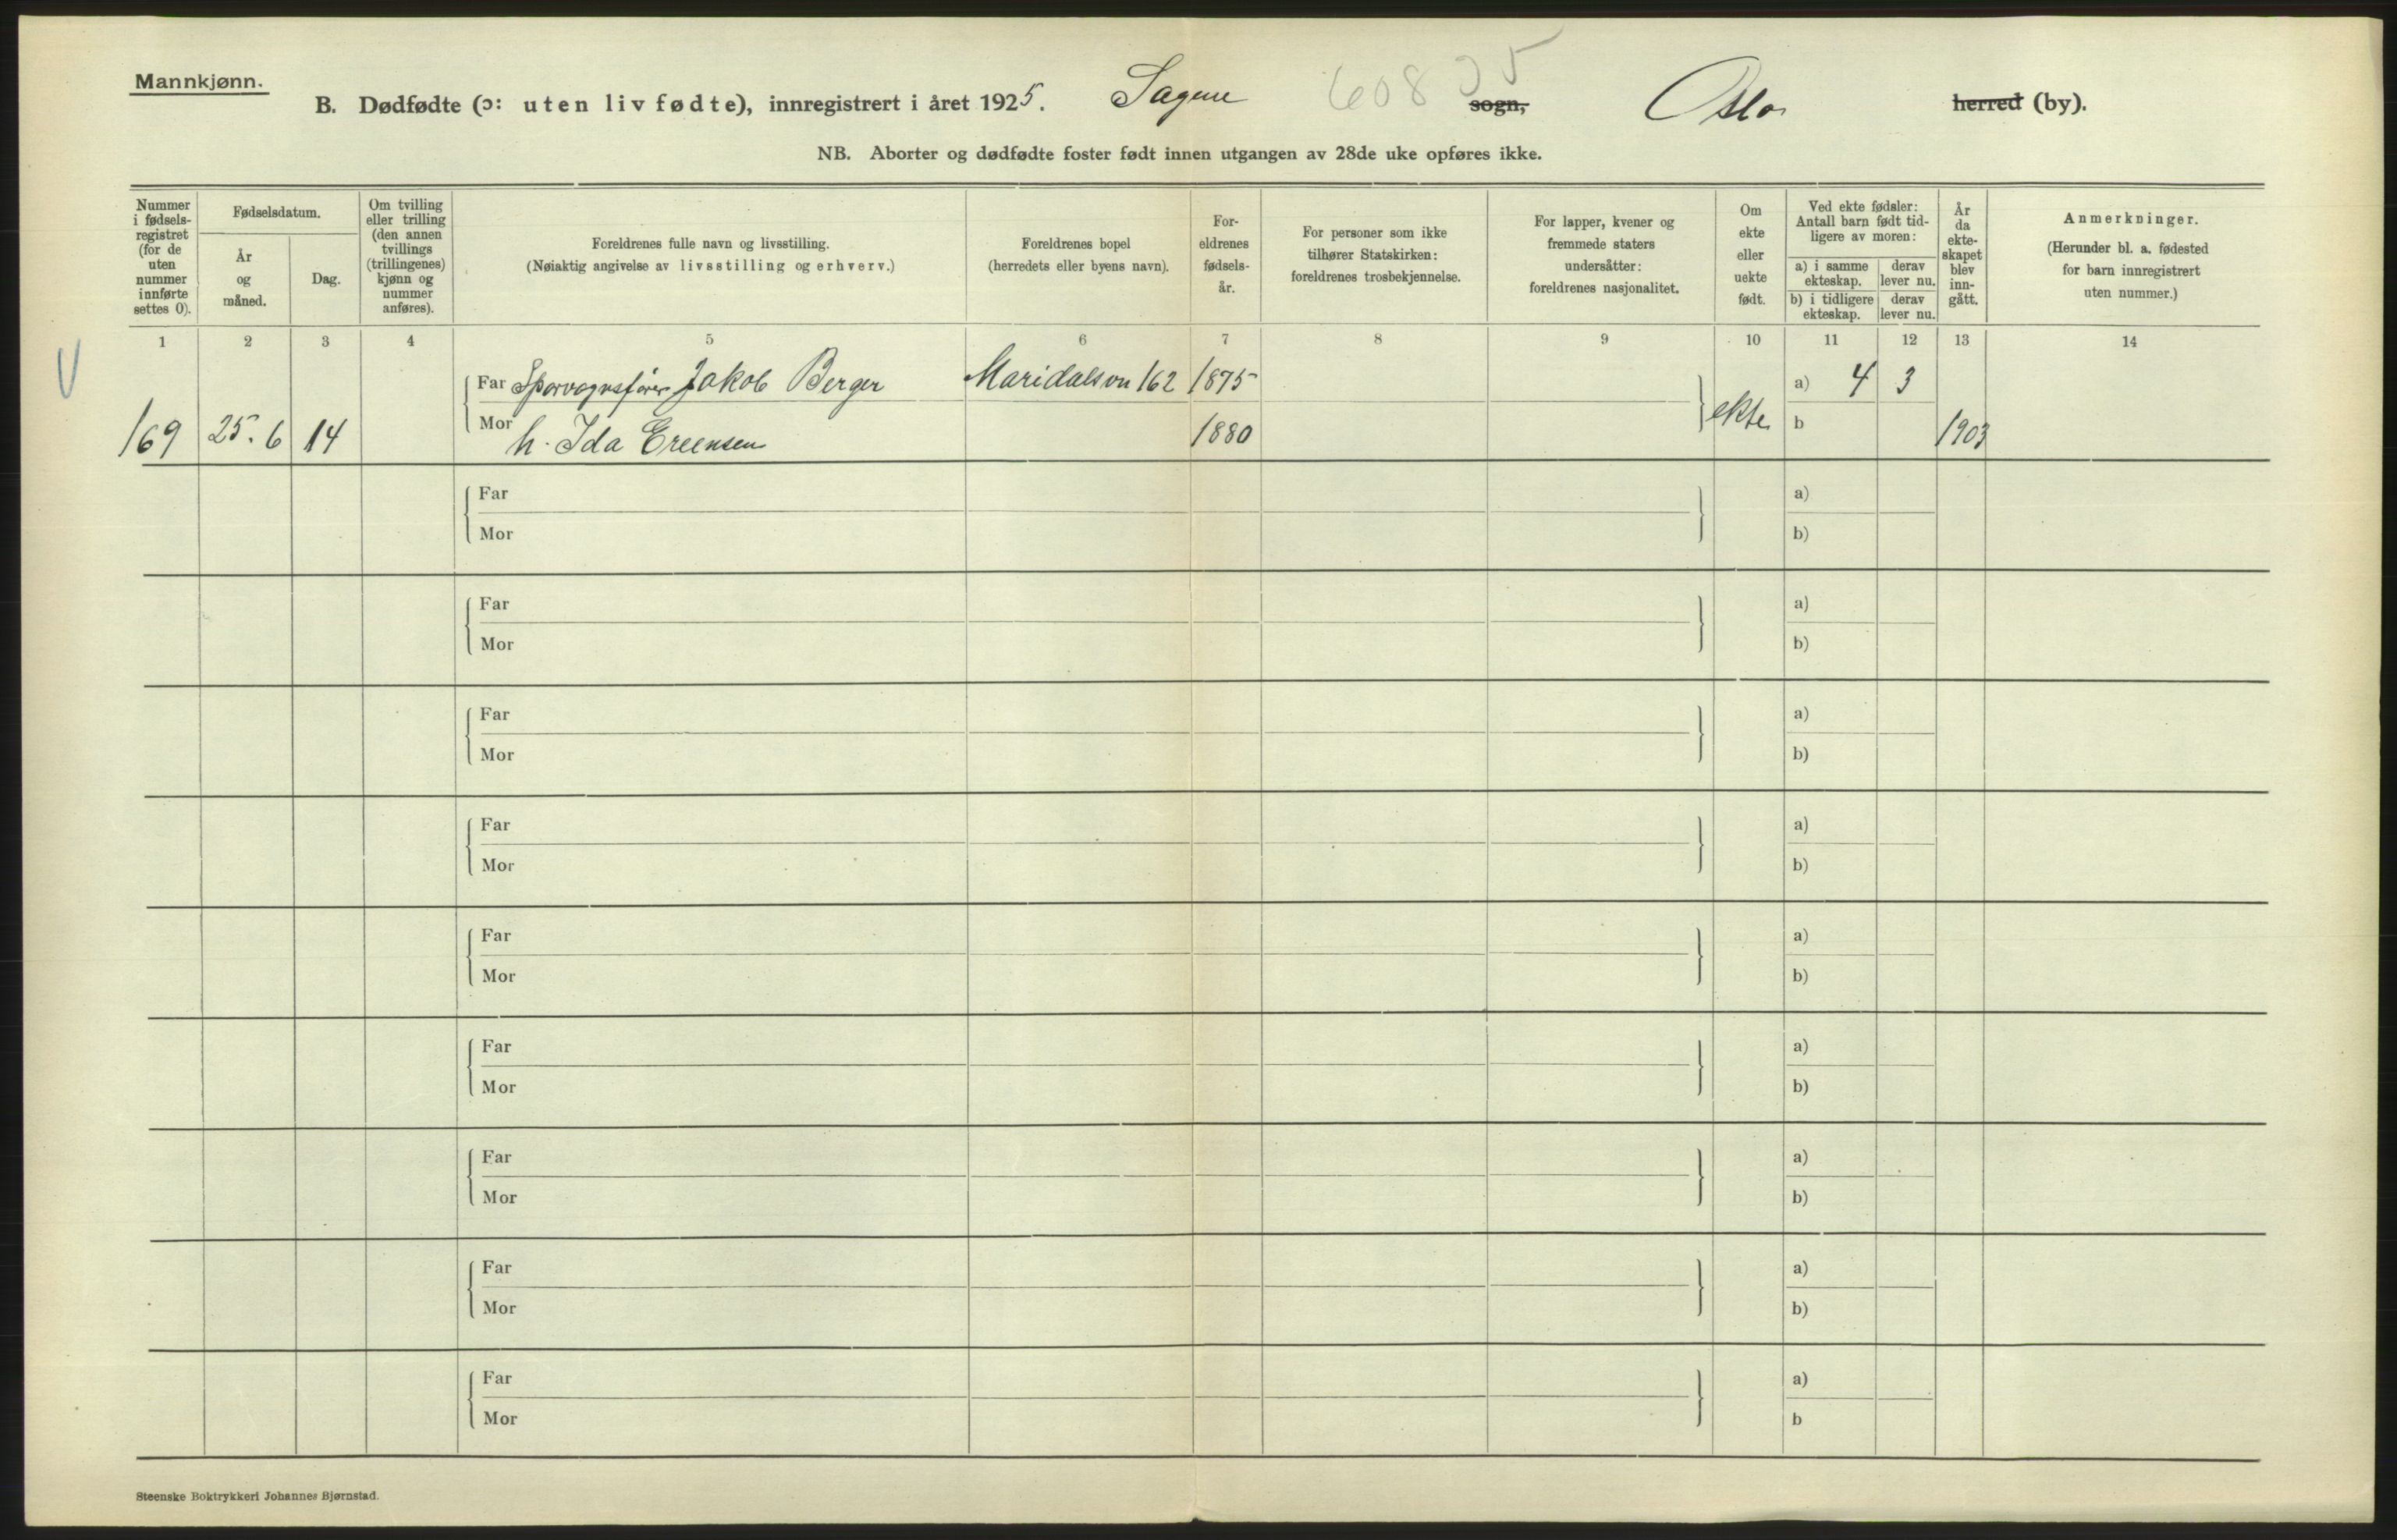 Mannkjønn.
B. Dødfødte (ɔ: uten liv fødte), innregistrert i året 1925. Sagene sogn, Oslo herred (by).
NB. Aborter og dødfødte foster født innen utgangen av 28de uke opføres ikke.
Nummer i fødsels-registret (for de uten nummer innførte settes 0).
Fødselsdatum.
År og måned.
Dag.
Om tvilling eller trilling (den annen tvillings (trillingenes) kjønn og nummer anføres).
Foreldrenes fulle navn og livsstilling.
(Nøiaktig angivelse av livsstilling og erhverv.)
Foreldrenes bopel
(herredets eller byens navn).
For-eldrenes fødsels-år.
For personer som ikke tilhører Statskirken: foreldrenes trosbekjennelse.
For lapper, kvener og fremmede staters undersåtter: foreldrenes nasjonalitet.
Om ekte eller uekte født.
Ved ekte fødsler: Antall barn født tid-ligere av moren:
a) i samme ekteskap.
derav lever nu.
b) i tidligere ekteskap.
derav lever nu.
År da ekte-skapet blev inn-gått.
Anmerkninger.
(Herunder bl. a. fødested for barn innregistrert uten nummer.)
1 2 3 4 5 6 7 8 9 10 11 12 13 14
V
Far Sporvognsfører Jakob Berger Maridalsvn 162 1875 a) 4 3
169 25. 6 14 Mor h. Ida 1880 ekte b 1903
Far a)
Mor b)
Far a)
Mor b)
Far a)
Mor b)
Far a)
Mor b)
Far a)
Mor b)
Far a)
Mor b)
Far a)
Mor b)
Far a)
Mor b)
Far a)
Mor b
Steenske Boktrykkeri Johannes Bjørnstad.